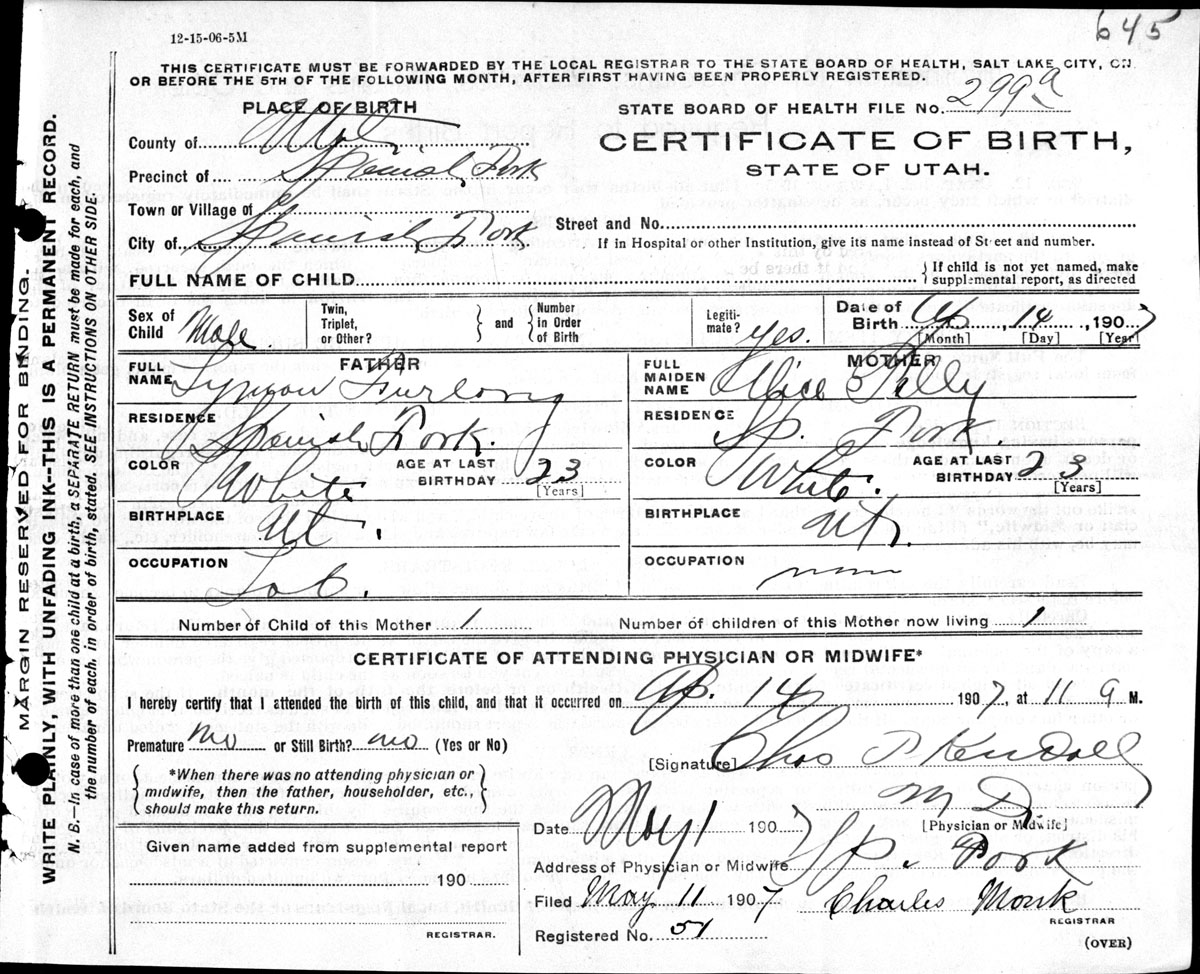 645
12-15-06-5M
THIS CERTIFICATE MUST BE FORWARDED BY THE LOCAL REGISTRAR TO THE STATE BOARD OF HEALTH, SALT LAKE CITY, ON
OR BEFORE THE 5TH OF THE FOLLOWING MONTH, AFTER FIRST HAVING BEEN PROPERLY REGISTERED.
PLACE OF BIRTH
County of Utah
Precinct of Spanish Fork
Town or Village of
City of Spanish Fork
STATE BOARD OF HEALTH FILE No. 299a
CERTIFICATE OF BIRTH,
STATE OF UTAH.
Street and No.
If in Hospital or other Institution, give its name instead of Street and number.
FULL NAME OF CHILD
} If child is not yet named, make
supplemental report, as directed
Sex of Child Male
Twin, Triplet, or Other? } and { Number in Order of Birth
Legiti- mate? yes.
Date of Birth Ap, 14, 1907
[Month] [Day] [Year]
FATHER
FULL NAME Lymon Furlong
RESIDENCE Spanish Fork.
COLOR White AGE AT LAST BIRTHDAY 23
[Years]
BIRTHPLACE Ut.
OCCUPATION Lab.
MOTHER
FULL MAIDEN NAME Alice
RESIDENCE Sp. Fork
COLOR White. AGE AT LAST BIRTHDAY 23
[Years]
BIRTHPLACE Ut.
OCCUPATION
Number of Child of this Mother 1
Number of children of this Mother now living 1
CERTIFICATE OF ATTENDING PHYSICIAN OR MIDWIFE*
I hereby certify that I attended the birth of this child, and that it occurred on Ap. 14 1907, at 11 a M.
Premature no or Still Birth? no (Yes or No)
{ *When there was no attending physician or
midwife, then the father, householder, etc.,
should make this return. }
[Signature] Chas P Kendall
M D.
[Physician or Midwife]
Date May 1 1907
Address of Physician or Midwife Sp. Fork
Filed May. 11 1907 Charles Monk
REGISTRAR
Registered No. 51
(OVER)
Given name added from supplemental report
190
REGISTRAR.
MARGIN RESERVED FOR BINDING.
WRITE PLAINLY, WITH UNFADING INK—THIS IS A PERMANENT RECORD.
N. B.—In case of more than one child at a birth, a SEPARATE RETURN must be made for each, and
the number of each, in order of birth, stated. SEE INSTRUCTIONS ON OTHER SIDE.